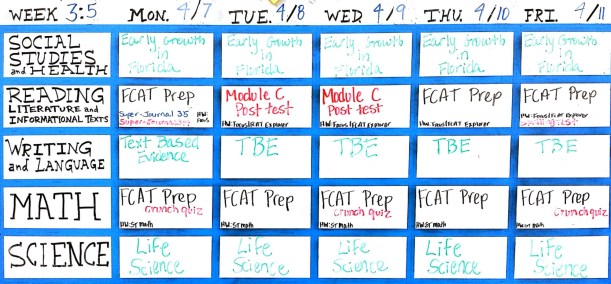 WEEK 3:5 MON. 4/7 TUE. 4/8 WED 4/9 THU. 4/10 FRI. 4/11
SOCIAL
STUDIES
and HEALTH
Early Growth
in
Florida
Early Growth
in
Florida
Early Growth
in
Florida
Early Growth
in
Florida
Early Growth
in
Florida
READING
LITERATURE and
INFORMATIONAL TEXTS
FCAT Prep
Super-Journal 35
HW:
Module C
Post test
HW: Focus/FCAT Explorer
Module C
Post test
HW: Focus/FCAT Explorer
FCAT Prep
HW: Focus/FCAT Explorer
FCAT Prep
HW: Focus/FCAT Explorer
WRITING
and LANGUAGE
Text Based
Evidence
TBE
TBE
TBE
TBE
MATH
FCAT Prep
Crunch quiz
HW: ST math
FCAT Prep
HW: ST math
FCAT Prep
Crunch quiz
HW: ST math
FCAT Prep
HW: ST math
FCAT Prep
Crunch quiz
HW: ST math
SCIENCE
Life
Science
Life
Science
Life
Science
Life
Science
Life
Science